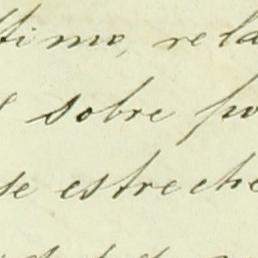 ttimo, rela
sobre po
se estreche